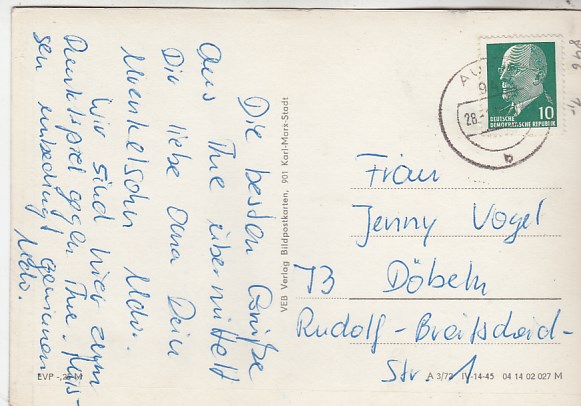 Die besten Grüße
aus Aue übermittelt
Dir liebe Oma Dein
Urenkelsohn Udo.
Wir sind hier zum
Punktspiel gegen Aue. Müs-
sen unbedingt gewinnen
Udo.
VEB Verlag Bildpostkarten, 901 Karl-Marx-Stadt
EVP -,25 M
AU
9
28.
b
10
DEUTSCHE
DEMOKRATISCHE REPUBLIK
Frau
Jenny Vogel
73 Döbeln
Rudolf-Breitscheid-
Str. 1
A 3/72 IV-14-45 04 14 02 027 M